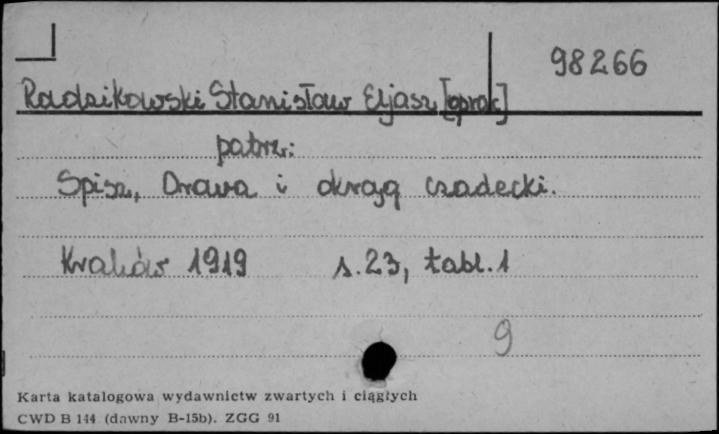 98266
Radzikowski Stanisław Eljasz [oprac]
patrz:
Spisz, Orawa i okrąg czadecki.
Kraków 1919 s. 23, tabl. 1
9
Karta katalogowa wydawnictw zwartych i ciągłych
CWD B 144 (dawny B-15b). ZGG 91